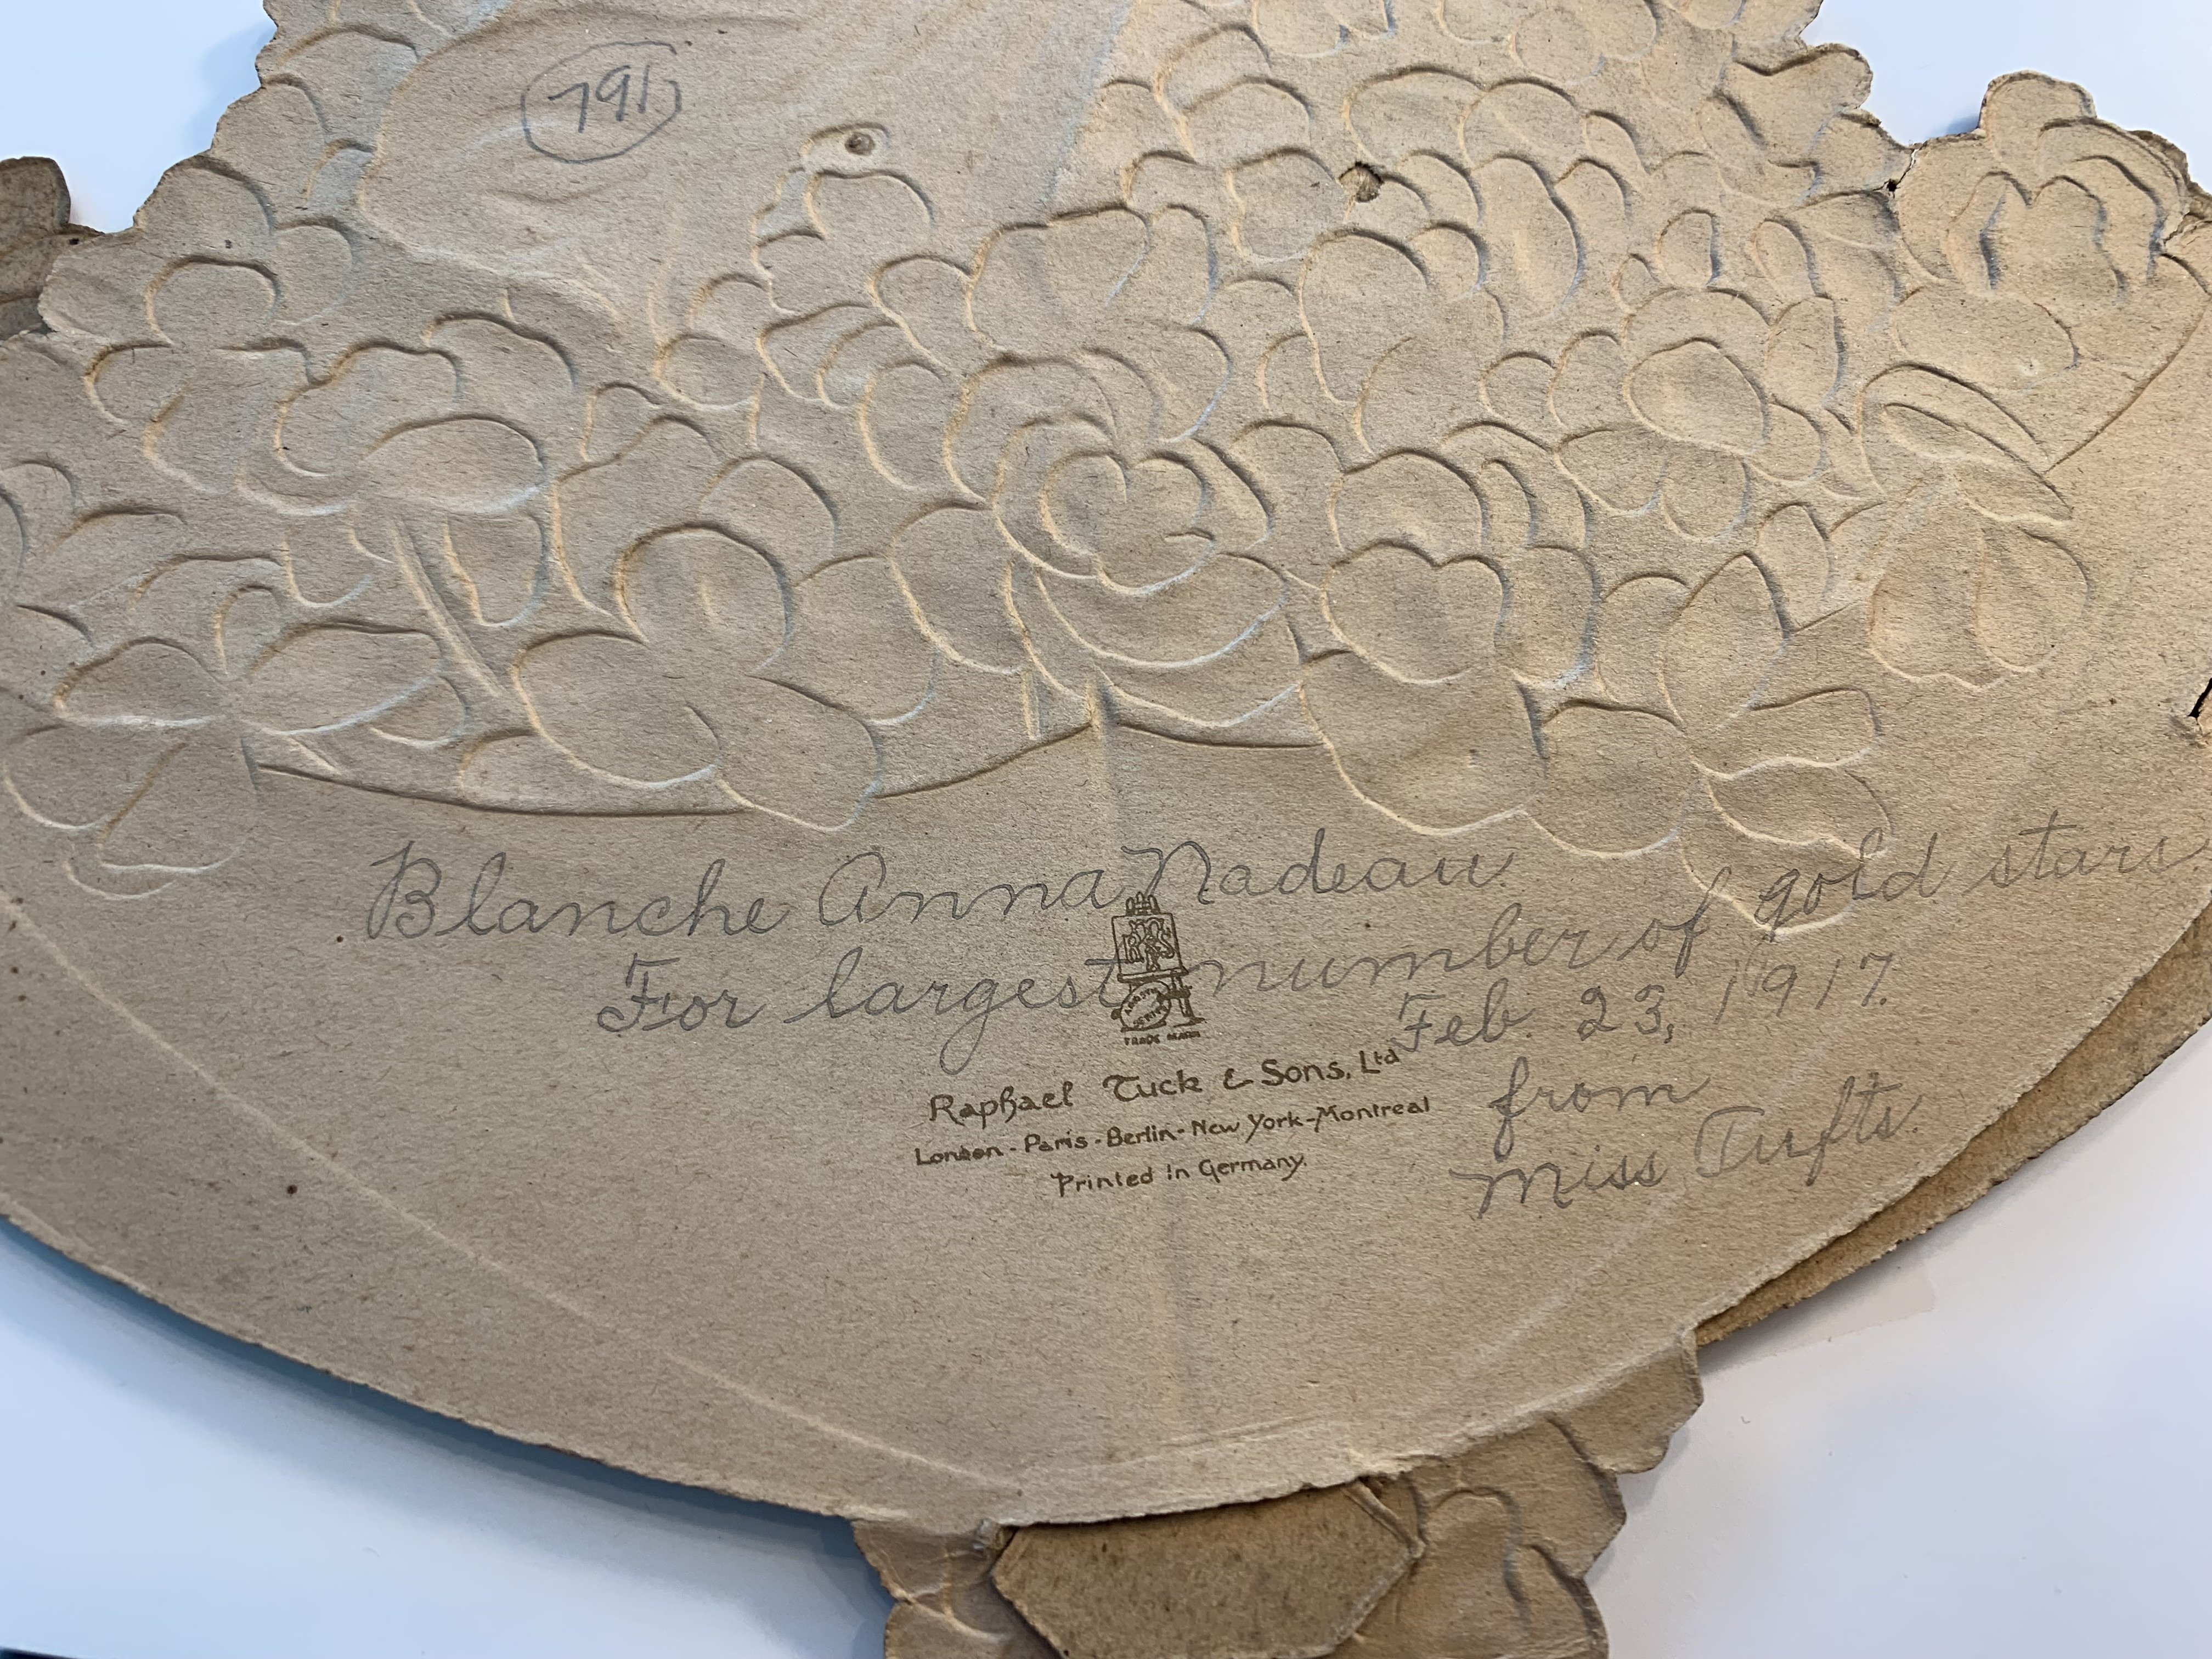 791
Blanche Anna Nadeau
For largest number of gold stars
Feb. 23, 1917.
from
Miss Tufts.
RTS
TRADE MARK
Raphael Tuck & Sons, Ltd
London - Paris - Berlin - New York - Montreal
Printed in Germany.